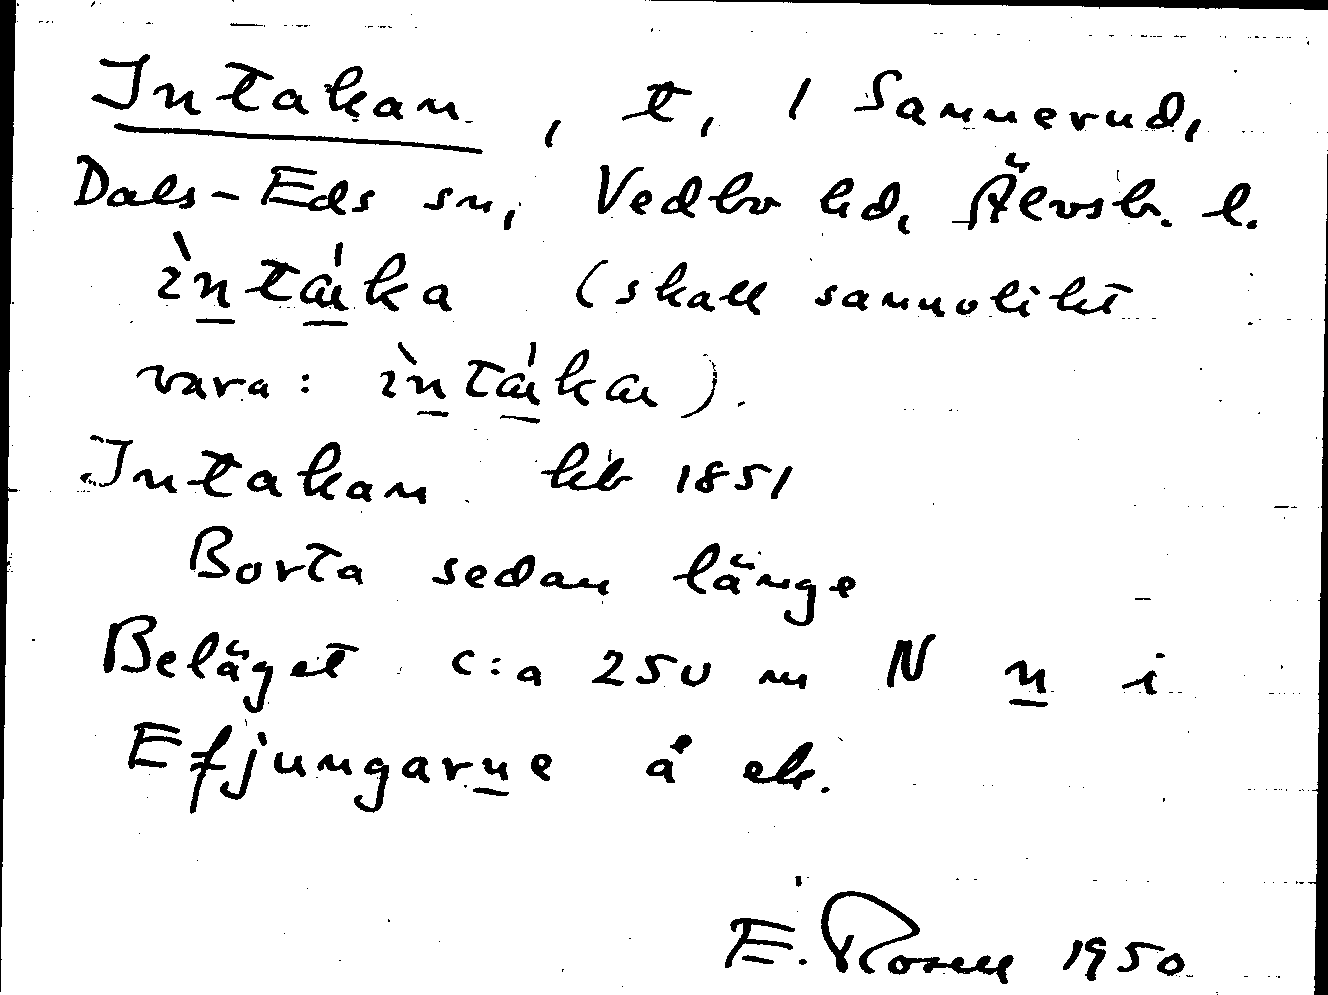 Intakan, t, 1 Sannerud,
Dals-Eds sn, Vedbo hd, Älvsb. l.
ìntáka (skall sannolikt
vara: ìntáka).
Intakan hfb 1851
Borta sedan länge
Beläget c:a 250 m N n i
Efjungarne å ek.
E. Rosell 1950